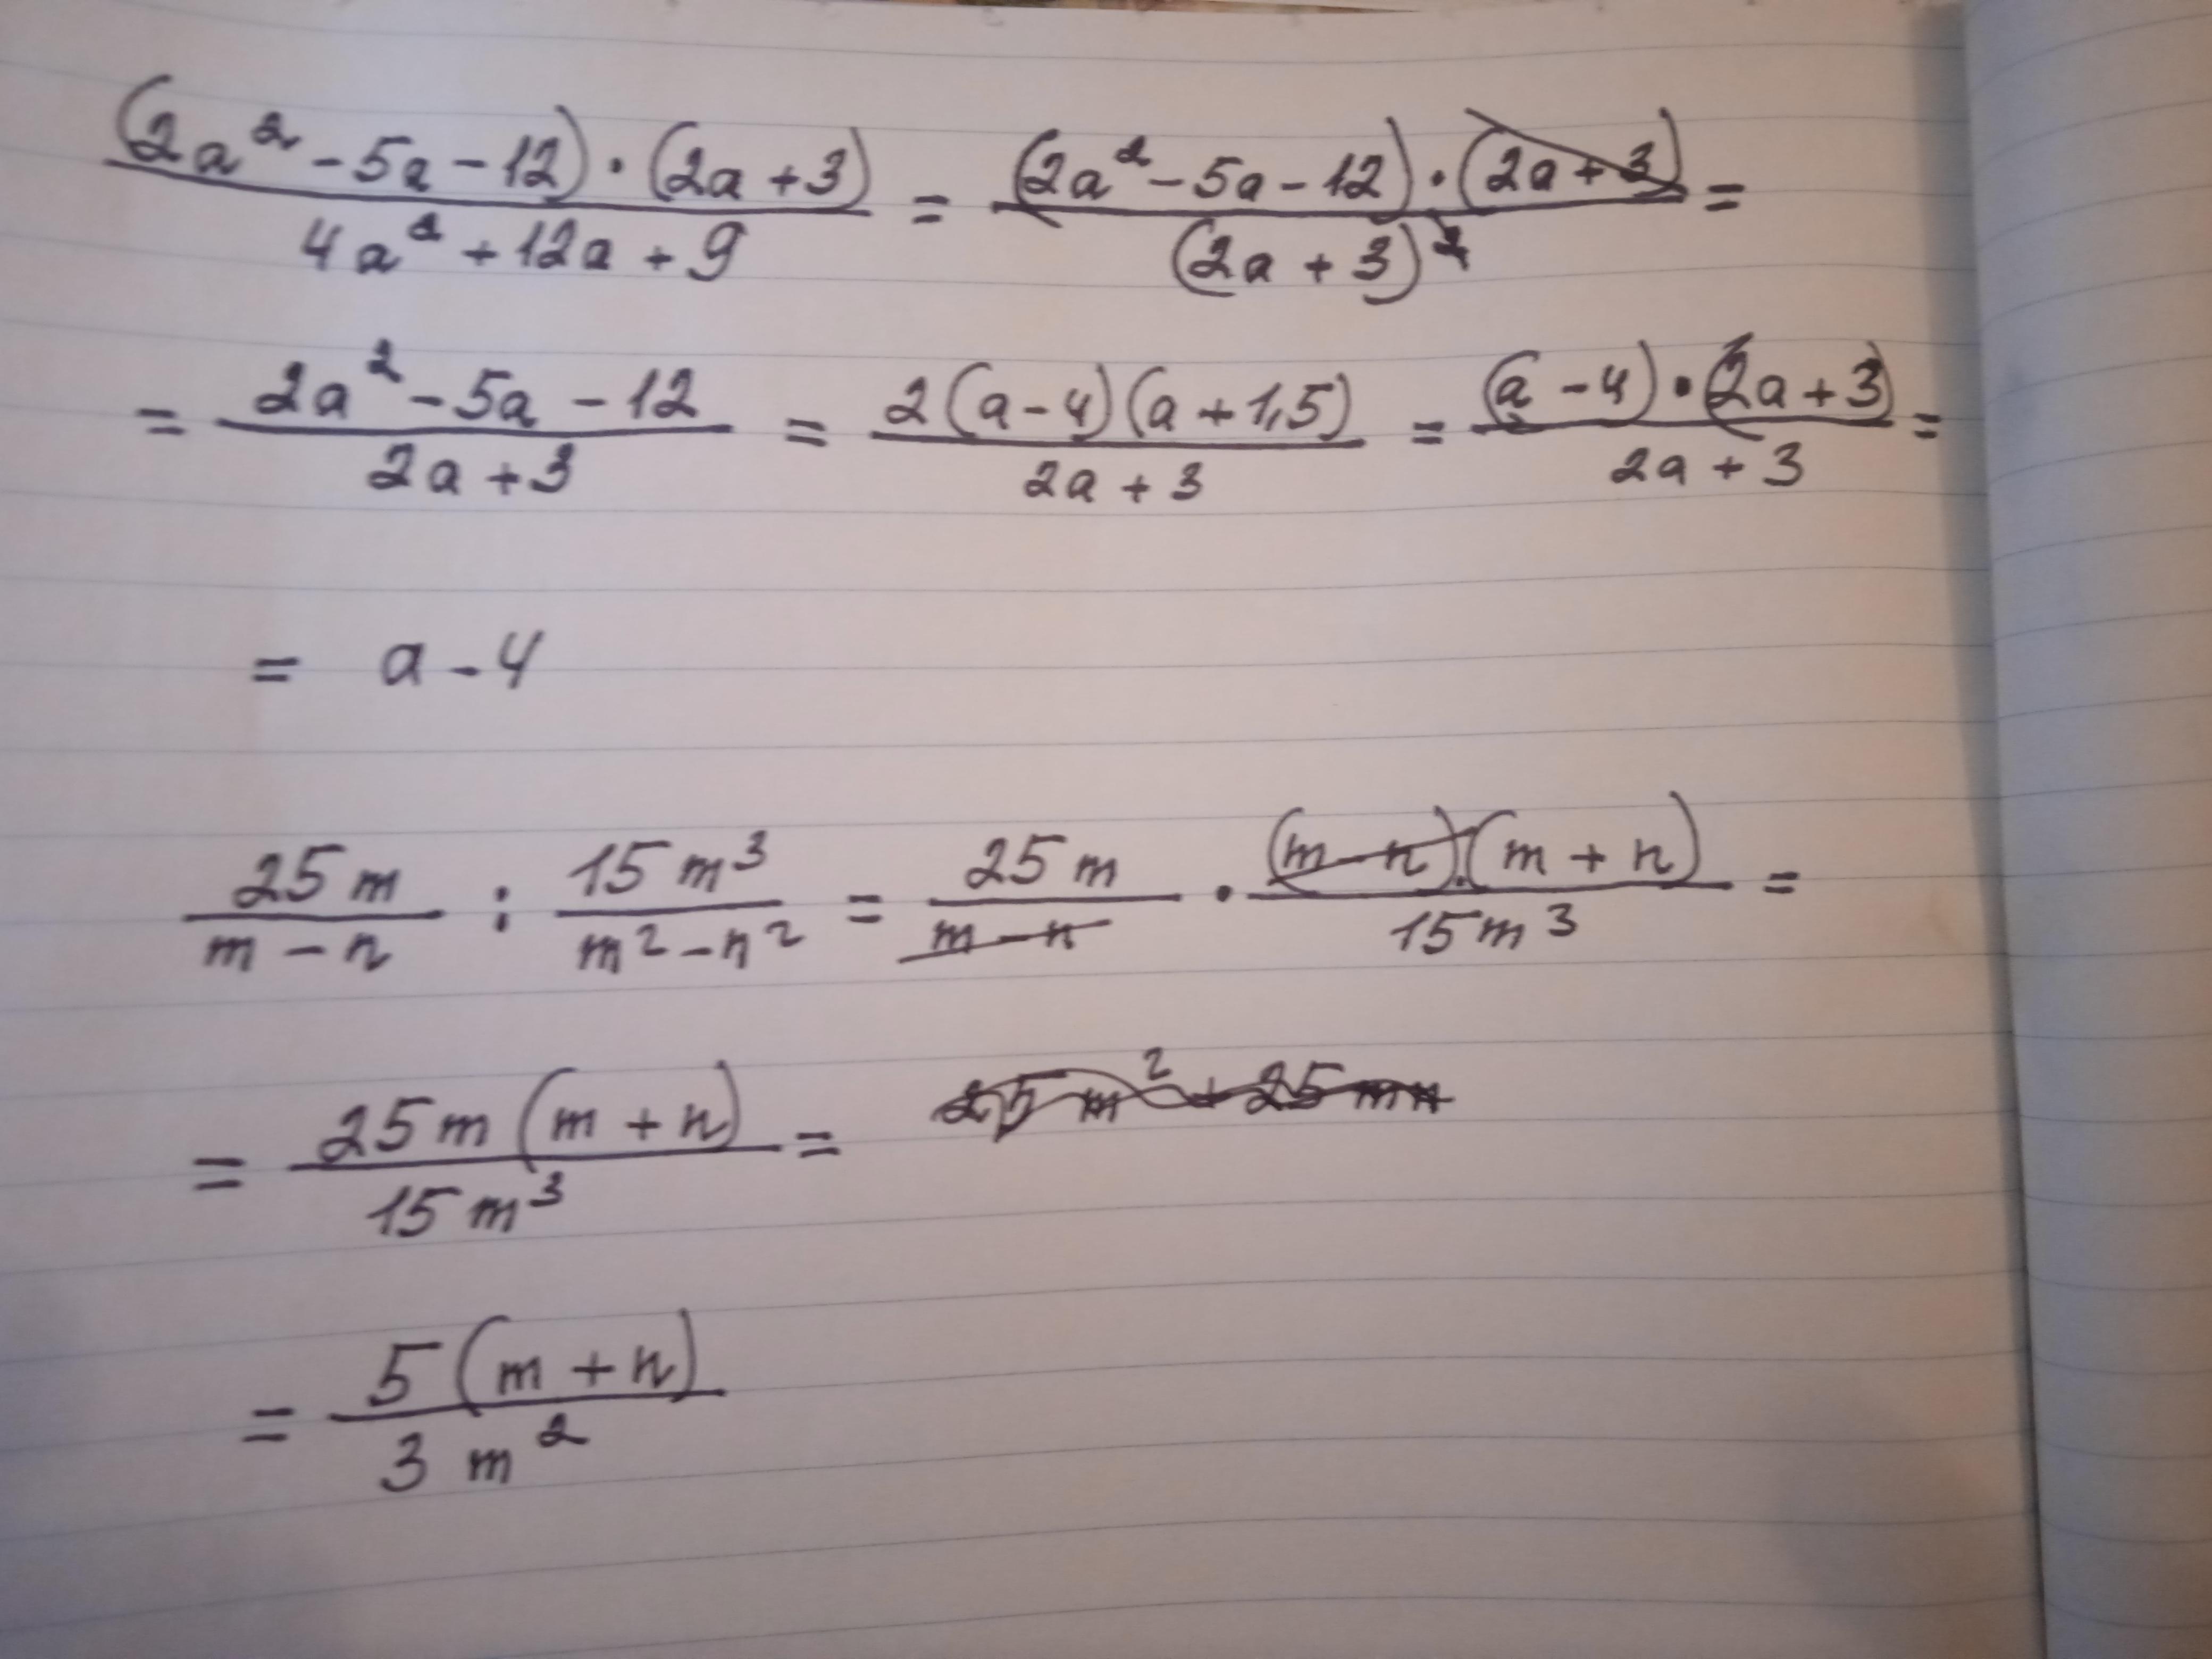 (2a² - 5a - 12) · (2a + 3) / 4a² + 12a + 9 = (2a² - 5a - 12) · (2a + 3) / (2a + 3)² =
= 2a² - 5a - 12 / 2a + 3 = 2(a - 4)(a + 1,5) / 2a + 3 = (a - 4) · (2a + 3) / 2a + 3 =
= a - 4
25m / m - n : 15m³ / m² - n² = 25m / m - n · (m - n)·(m + n) / 15m³ =
= 25m(m + n) / 15m³ = 25m² + 25mn
= 5(m + n) / 3m²